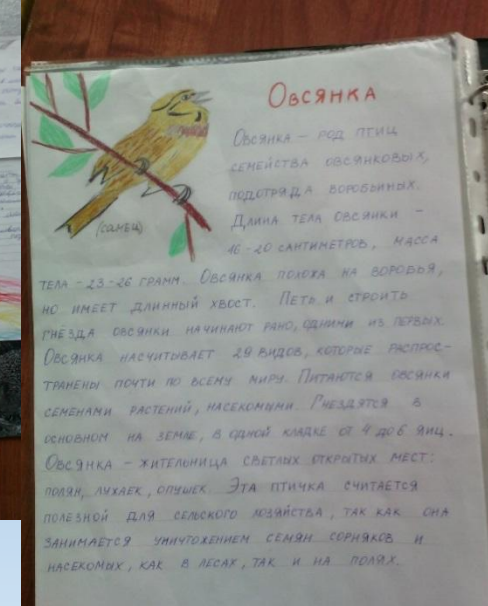 Овсянка
Овсянка – род птиц
семейства овсянковых,
подотряда воробьиных.
Длина тела овсянки –
16-20 сантиметров, масса
(самец)
тела – 23-26 грамм. Овсянка похожа на воробья,
но имеет длинный хвост. Петь и строить
гнёзда овсянки начинают рано, одними из первых.
Овсянка насчитывает 29 видов, которые распрос-
транены почти по всему миру. Питаются овсянки
семенами растений, насекомыми. Гнездятся в
основном на земле, в одной кладке от 4 до 6 яиц.
Овсянка – жительница светлых открытых мест:
полян, лужаек, опушек. Эта птичка считается
полезной для сельского хозяйства, так как она
занимается уничтожением семян сорняков и
насекомых, как в лесах, так и на полях.